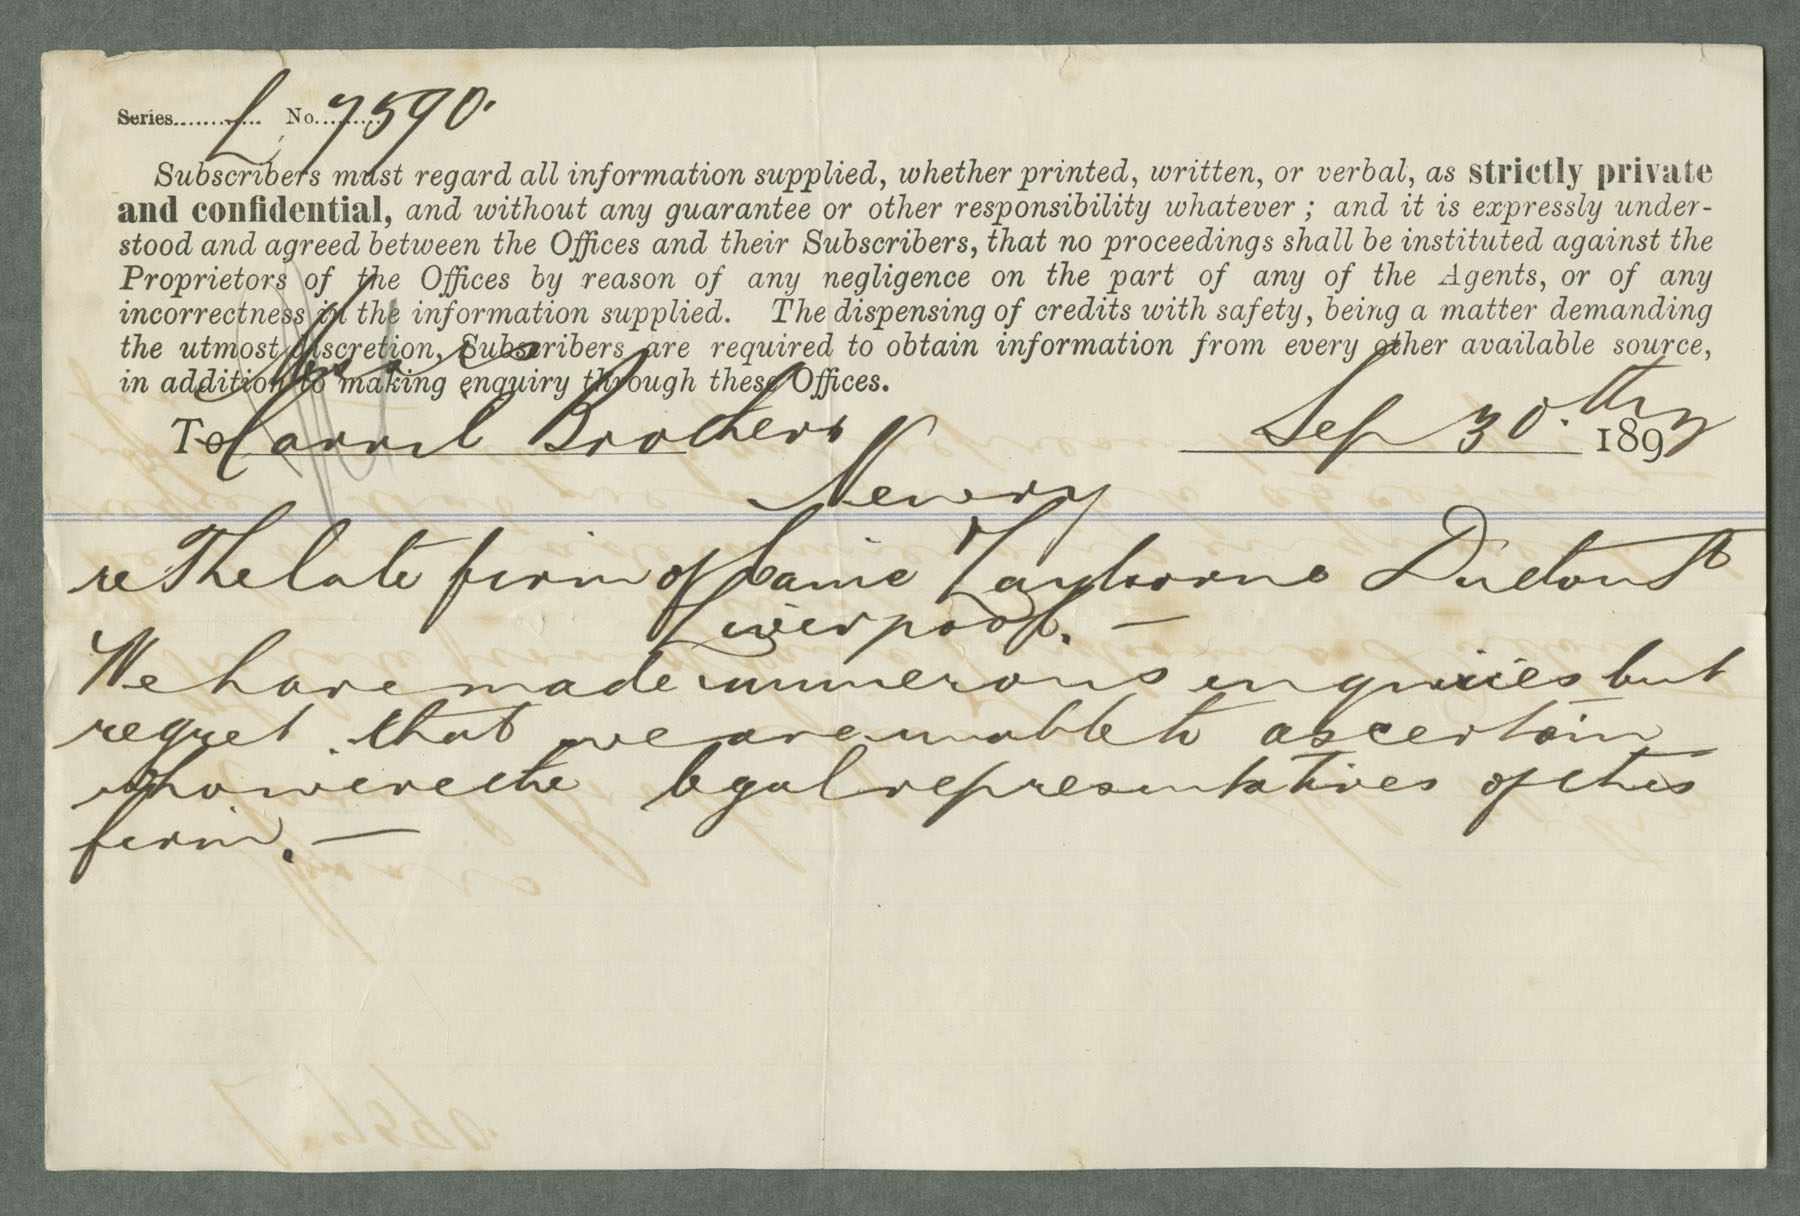 Series............ L No......... 7590.
Subscribers must regard all information supplied, whether printed, written, or verbal, as strictly private
and confidential, and without any guarantee or other responsibility whatever ; and it is expressly under-
stood and agreed between the Offices and their Subscribers, that no proceedings shall be instituted against the
Proprietors of the Offices by reason of any negligence on the part of any of the Agents, or of any
incorrectness in the information supplied. The dispensing of credits with safety, being a matter demanding
the utmost discretion, Subscribers are required to obtain information from every other available source,
in addition to making enquiry through these Offices.
Messrs
To Carvil Brothers Sep 30.th 1893
Newry
re The late firm of Laine Duton St
Liverpool. —
We have made numerous inquiries but
regret that we are unable to ascertain
who were the legal representatives of this
firm. —